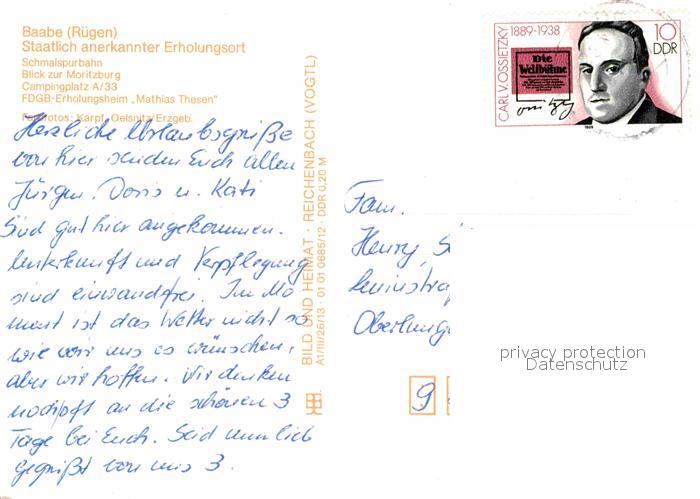 Baabe (Rügen)
Staatlich anerkannter Erholungsort
Schmalspurbahn
Blick zur Moritzburg
Campingplatz A/33
FDGB-Erholungsheim „Mathias Thesen"
Fotos: Karpf, Oelsnitz/Erzgeb.
Herzliche Urlaubsgrüße
von hier senden Euch allen
Jürgen, Doris u. Kati
Sind gut hier angekommen.
Unterkunft und Verpflegung
sind einwandfrei. Im Mo
ment ist das Wetter nicht so
wie wir uns es wünschen,
aber wir hoffen. Wir denken
noch oft an die schönen 3
Tage bei Euch. Seid nun lieb
gegrüßt von uns 3.
BILD UND HEIMAT · REICHENBACH (VOGTL)
A1/III/26/13 · 01 01 0685/12 · DDR 0,20 M
CARL V. OSSIETZKY 1889-1938
10
DDR
Die
Weltbühne
1989
Fam.
Henry
Leninstra
9
privacy protection
Datenschutz